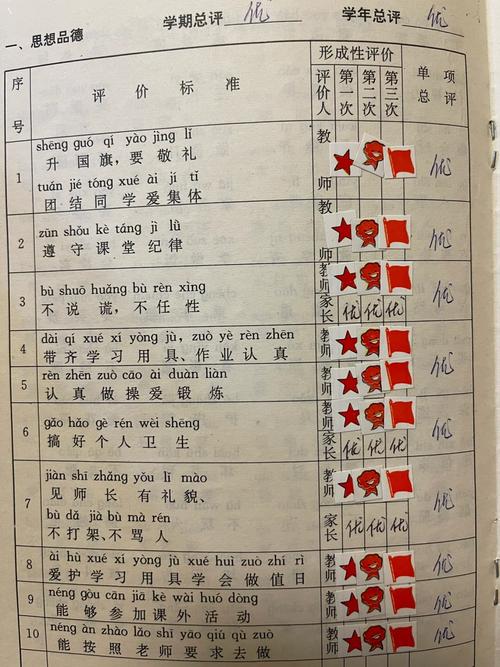 学期总评 优 学年总评 优
一、思想品德
序号 评价标准 形成性评价 单项总评
评价人 第一次 第二次 第三次
shēng guó qí yào jìng lǐ
1 升国旗,要敬礼 教师 优
tuán jié tóng xué ài jí tǐ
团结同学爱集体
zūn shǒu kè táng jì lǜ
2 遵守课堂纪律 教师 优
bù shuō huǎng bù rèn xìng
3 不说谎,不任性 教师 优
家长 优 优 优
dài qí xué xí yòng jù, zuò yè rèn zhēn
4 带齐学习用具、作业认真 教师 优
rèn zhēn zuò cāo ài duàn liàn
5 认真做操爱锻炼 教师 优
gǎo hǎo gè rén wèi shēng
6 搞好个人卫生 教师 优
家长 优 优 优
jiàn shī zhǎng yǒu lǐ mào
7 见师长有礼貌、 教师 优
bù dǎ jià bù mà rén
不打架、不骂人 家长 优 优 优
ài hù xué xí yòng jù xué huì zuò zhí rì
8 爱护学习用具学会做值日 教师 优
néng gòu cān jiā kè wài huó dòng
9 能够参加课外活动 教师 优
néng àn zhào lǎo shī yāo qiú qù zuò
10 能按照老师要求去做 教师 优